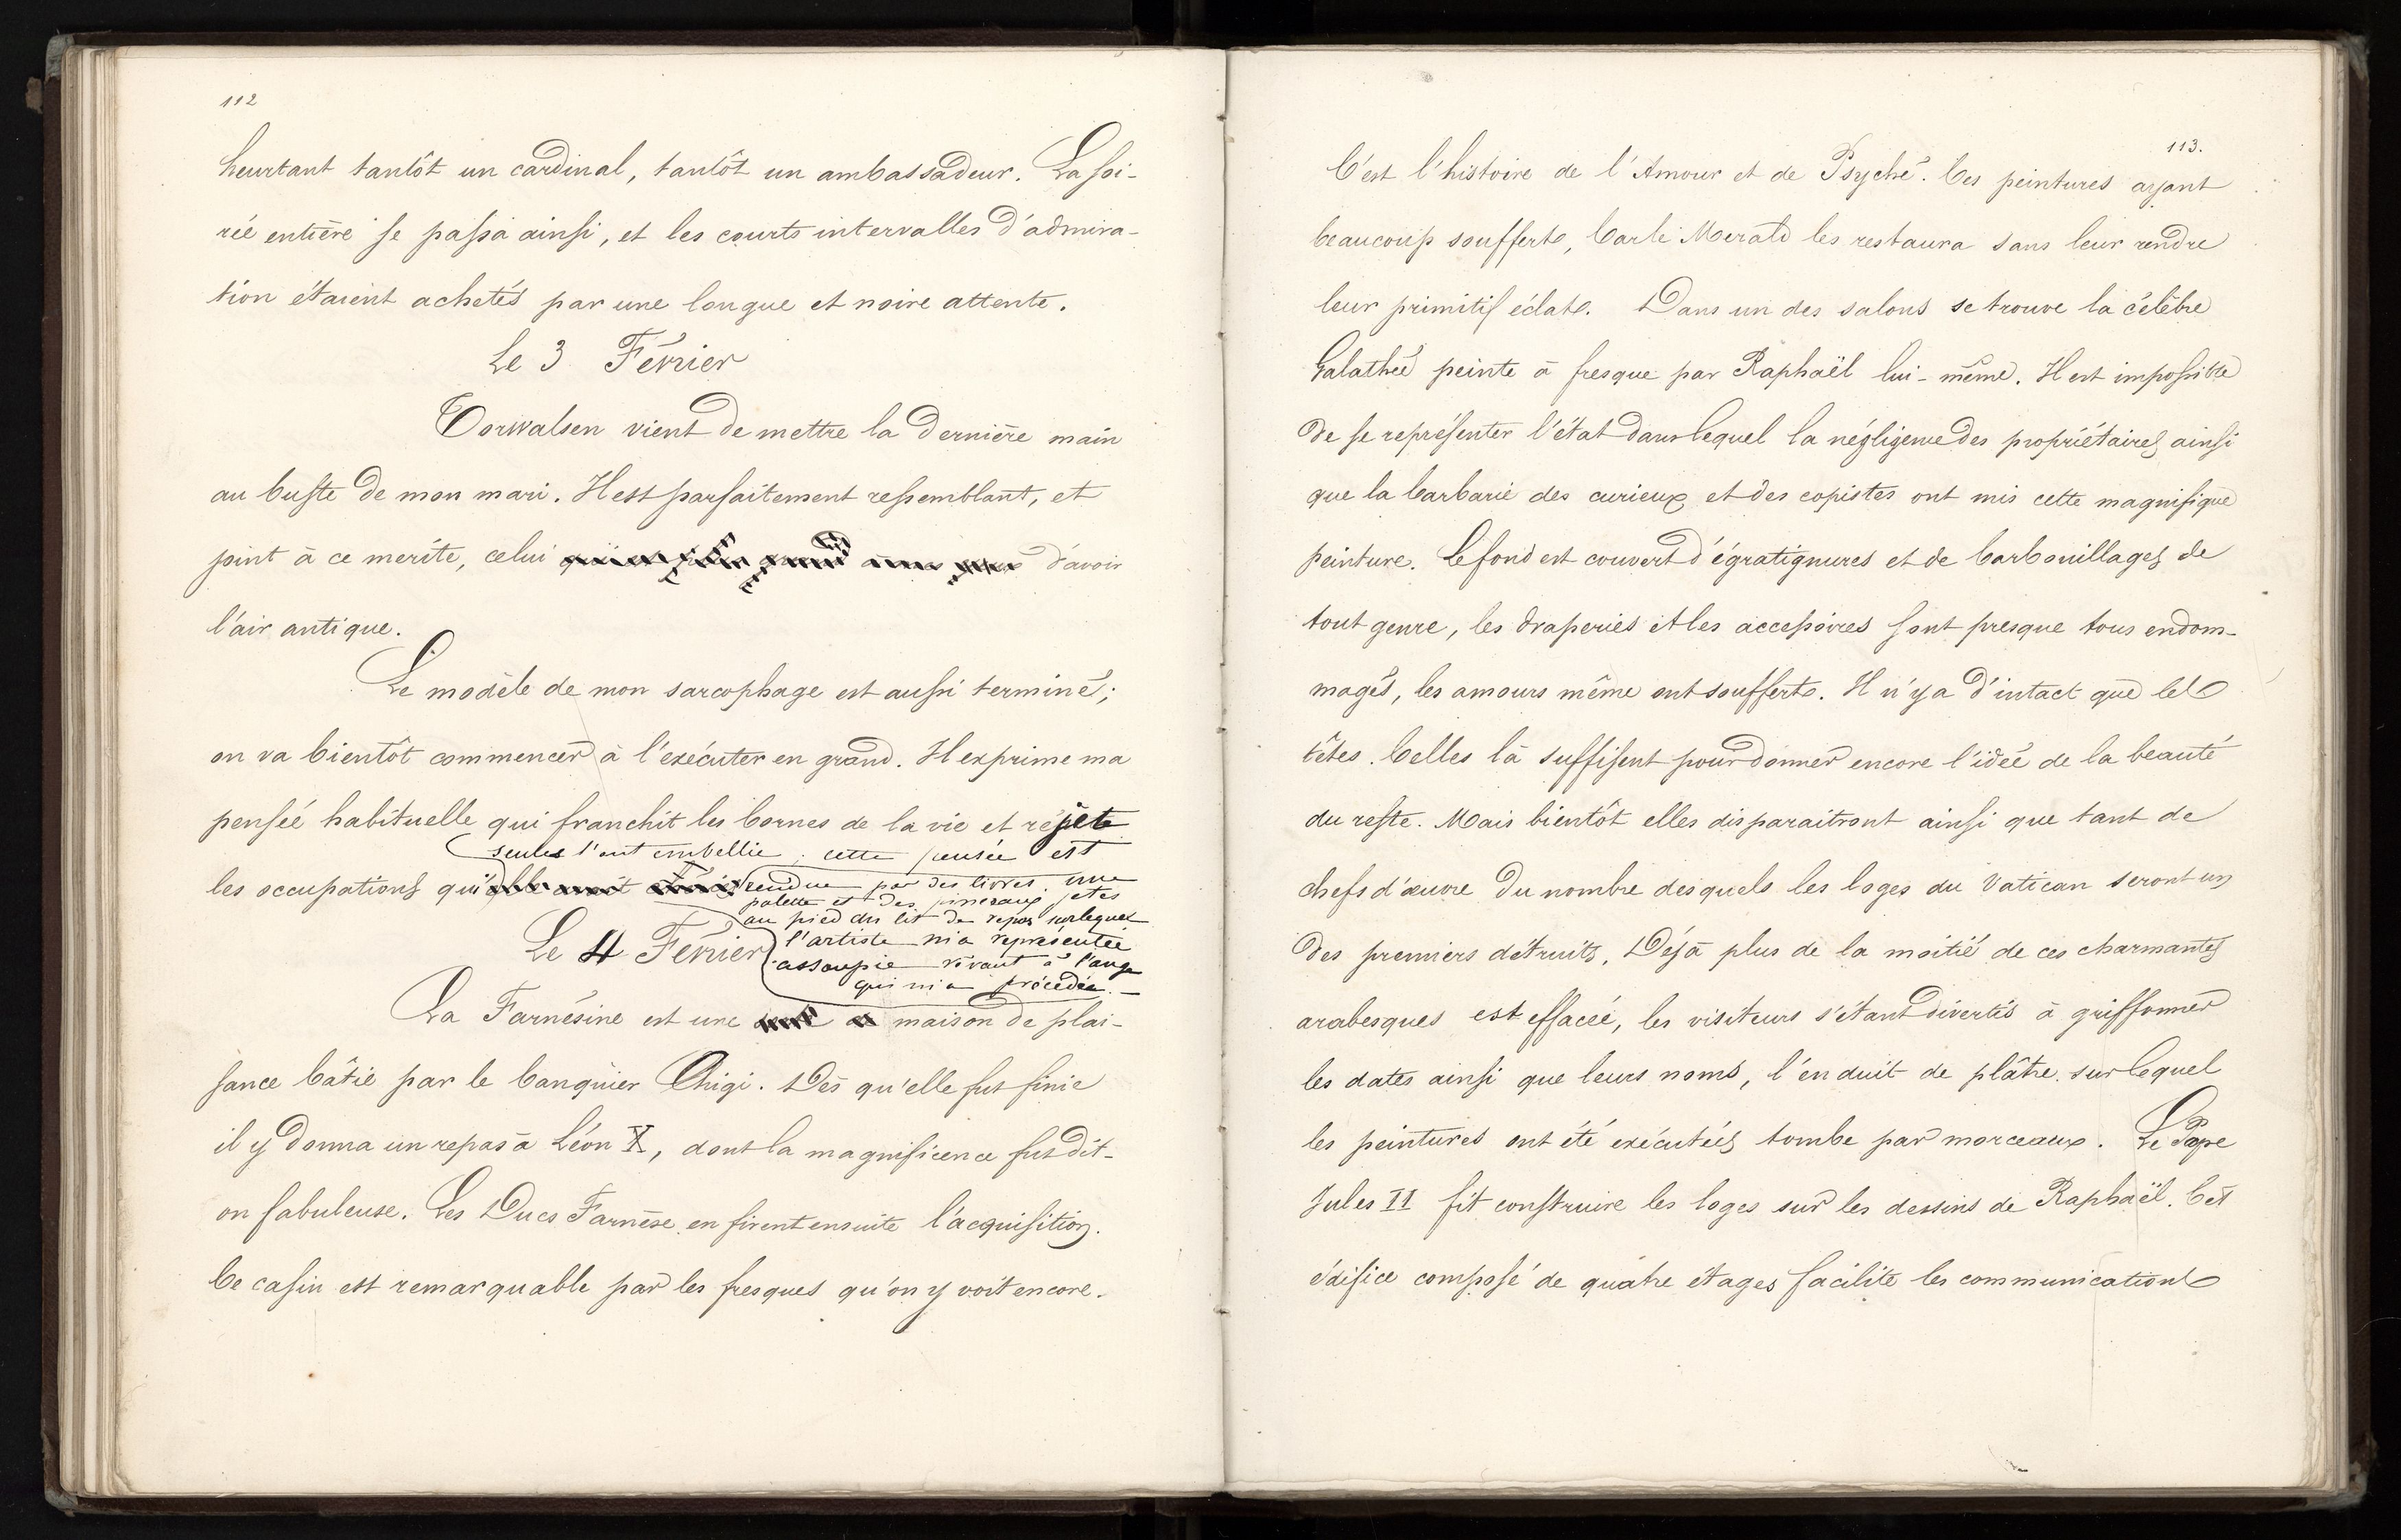 112
heurtant tantôt un cardinal, tantôt un ambassadeur. La soi-
rée entière se passa ainsi, et les courts intervalles d'admira-
tion étaient achetés par une longue et noire attente.
Le 3 Février
Torwalsen vient de mettre la dernière main
au buste de mon mari. Il est parfaitement ressemblant, et
joint à ce merite, celui d'avoir
l'air antique.
Le modèle de mon sarcophage est aussi terminé;
on va bientôt commencer à l'exécuter en grand. Il exprime ma
pensée habituelle qui franchit les bornes de la vie et rejète
les occupations qui
seules l'ont embellie; cette pensée est
rendue par des livres, une
palette et des pinceaux jetés
au pied du lit de repos sur lequel
l'artiste m'a représentée
assoupie rêvant à l'ange
qui m'a précédée. —
Le 4 Février
La Farnésine est une maison de plai-
sance bâtie par le banquier Chigi. Dès qu'elle fut finie
il y donna un repas à Léon X, dont la magnificence fut dit-
on fabuleuse. Les Ducs Farnèse en firent ensuite l'acquisition.
Ce casin est remarquable par les fresques qu'on y voit encore.
113.
C'est l'histoire de l'Amour et de Psyché. Ces peintures ayant
beaucoup souffert, Carle Merald les restaura sans leur rendre
leur primitif éclat. Dans un des salons se trouve la célèbre
Galathée peinte à fresque par Raphaël lui-même. Il est impossible
de se représenter l'état dans lequel la négligence des propriétaires ainsi
que la barbarie des curieux et des copistes ont mis cette magnifique
peinture. Le fond est couvert d'égratignures et de barbouillages de
tout genre, les draperies et les accessoires sont presque tous endom-
magés, les amours même ont souffert. Il n'y a d'intact que les
têtes. Celles là suffisent pour donner encore l'idée de la beauté
du reste. Mais bientôt elles disparaitront ainsi que tant de
chefs d'œuvre du nombre desquels les loges du Vatican seront un
des premiers détruits. Déjà plus de la moitié de ces charmantes
arabesques est effacée, les visiteurs s'étant divertis à griffonner
les dates ainsi que leurs noms, l'enduit de plâtre sur lequel
les peintures ont été exécutées tombe par morceaux. Le Pape
Jules II fit construire les loges sur les dessins de Raphaël. Cet
édifice composé de quatre étages facilite les communications